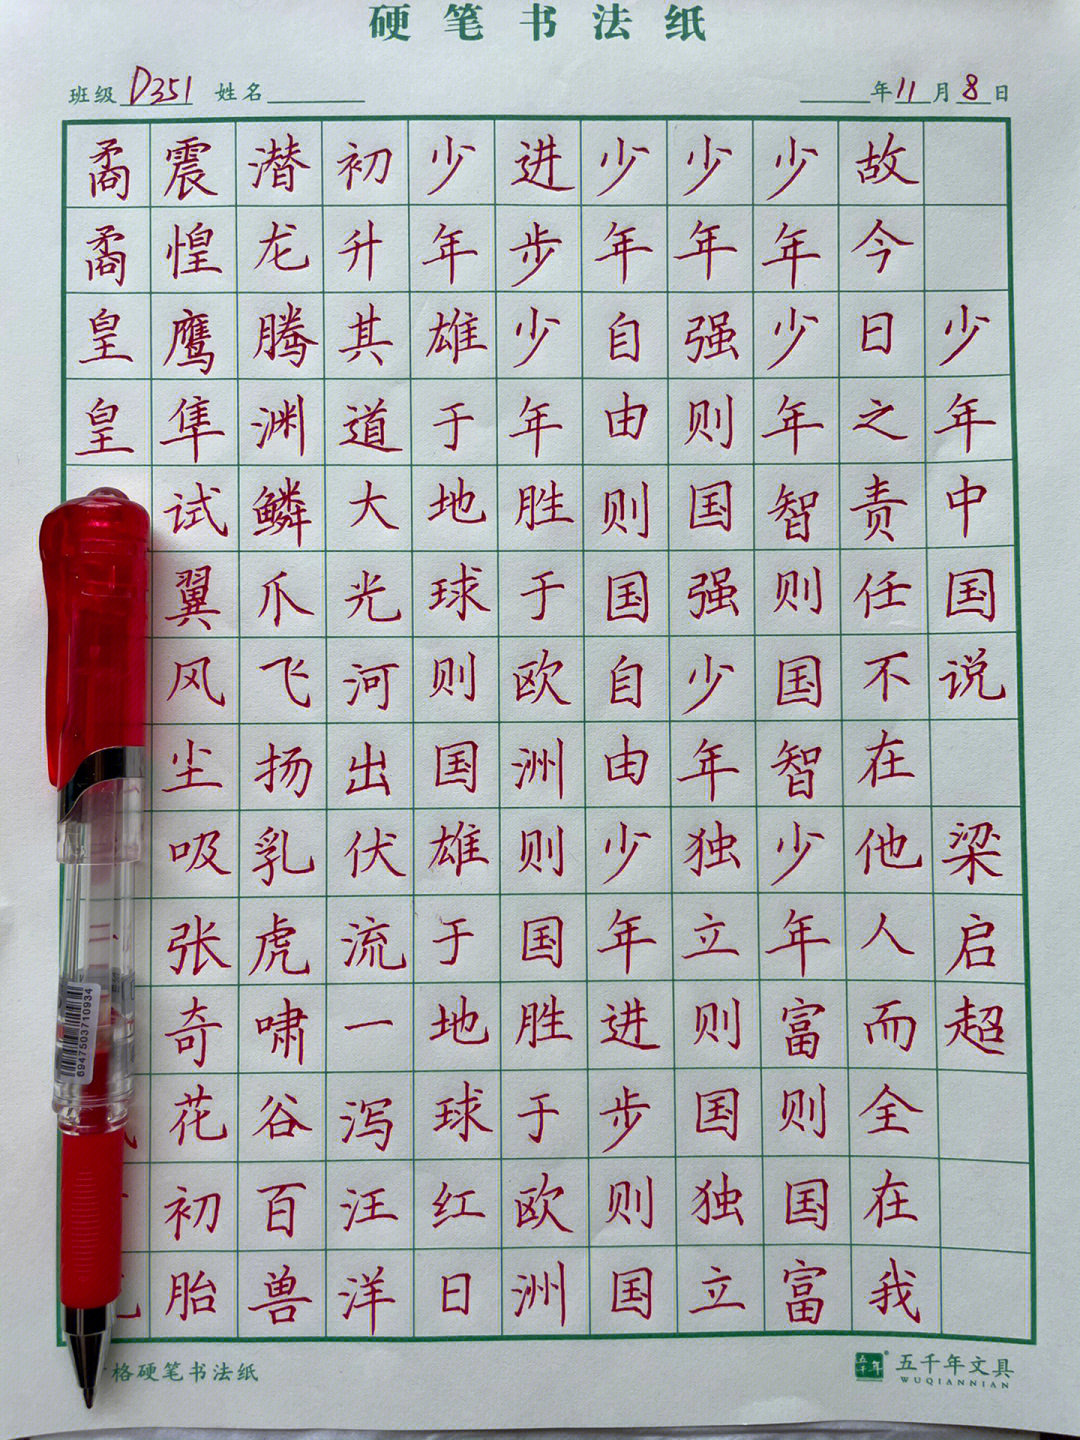 硬笔书法纸
班级 D351 姓名 年 11 月 8 日
少年中国说 梁启超
故今日之责任不在他人而全在我
少年少年智则国智少年富则国富
少年强则国强少年独立则国独立
少年自由则国自由少年进步则国
进步少年胜于欧洲则国胜于欧洲
少年雄于地球则国雄于地球红日
初升其道大光河出伏流一泻汪洋
潜龙腾渊鳞爪飞扬乳虎啸谷百兽
震惶鹰隼试翼风尘吸张奇花初胎
矞矞皇皇
6947503710934
格硬笔书法纸
五千年 五千年文具
WUQIANNIAN